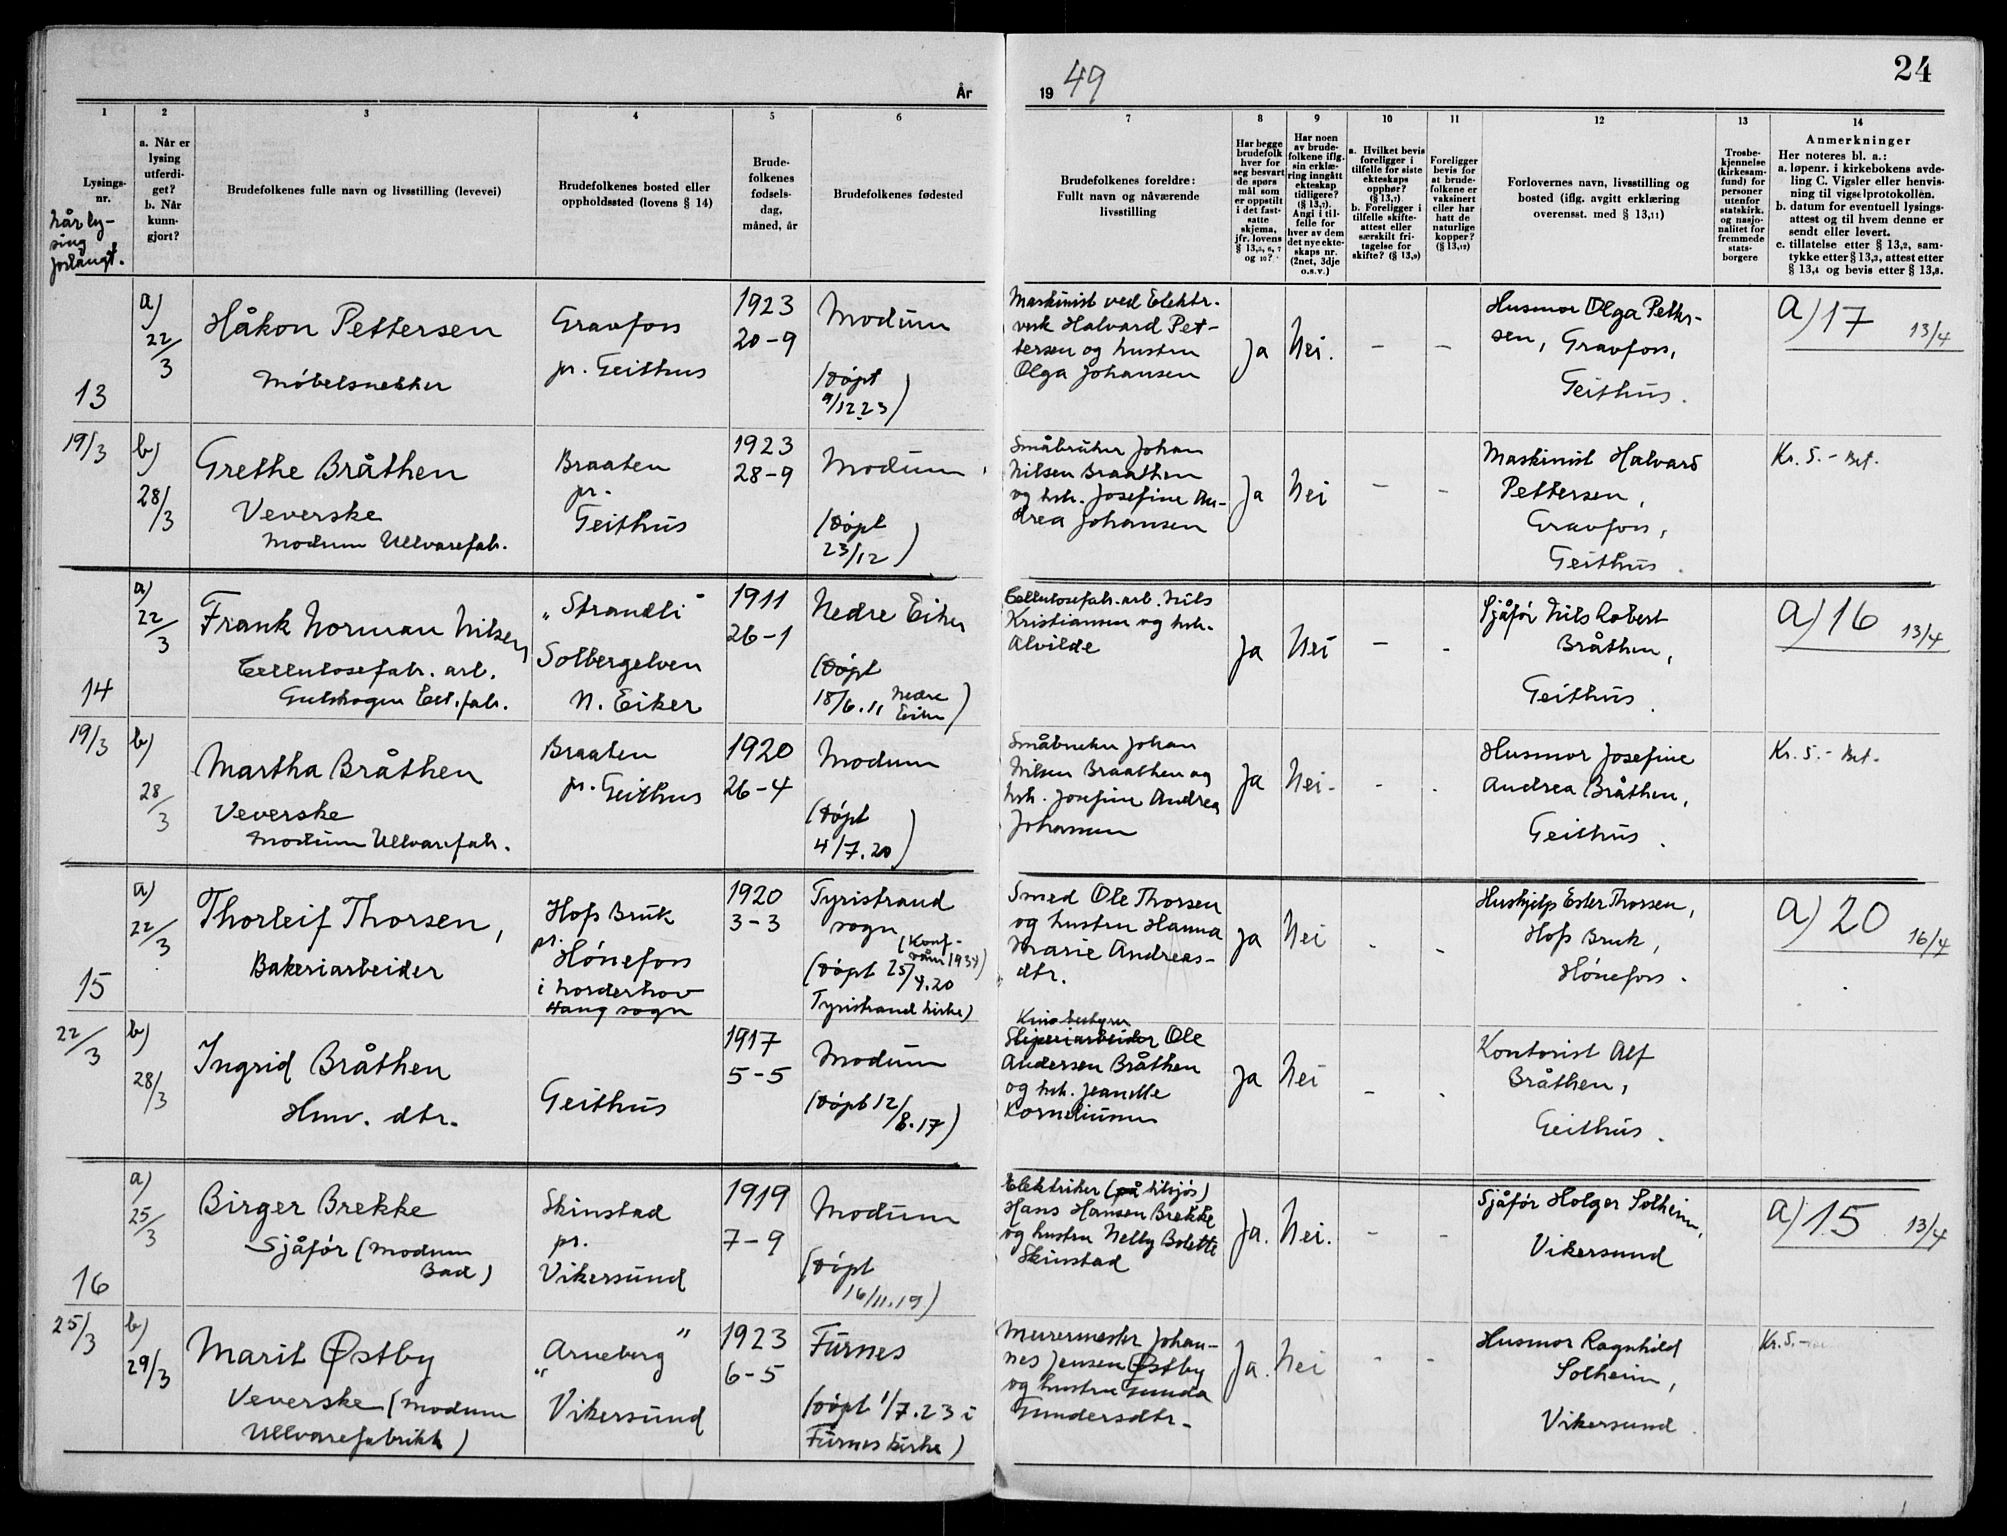 År
19 49
24
1
2
3
4
5
6
7
8
9
10
11
12
13
14
Lysings-
nr.
Når ly-
sing
forlangt.
a. Når er
lysing
utferdi-
get?
b. Når
kunn-
gjort?
Brudefolkenes fulle navn og livsstilling (levevei)
Brudefolkenes bosted eller
oppholdssted (lovens § 14)
Brude-
folkenes
fødsels-
dag,
måned, år
Brudefolkenes fødested
Brudefolkenes foreldre:
Fullt navn og nåværende
livsstilling
Har begge
brudefolk
hver for
seg besvart
de spørs
mål som
er oppstilt
i det fast-
satte
skjema,
jfr. lovens
§ 13,5, 6, 7
og 10?
Har noen
av brude-
folkene iflg.
sin erklæ-
ring inngått
ekteskap
tidligere?
(§ 13,7).
Angi i til-
felle for
hver av dem
det nye ekte-
skaps nr.
(2net, 3dje
o.s.v.)
a. Hvilket bevis
foreligger i
tilfelle for siste
ekteskaps
opphør?
(§ 13,7)
b. Foreligger i
tilfelle skifte-
attest eller
særskilt fri-
tagelse for
skifte? (§ 13,9)
Foreligger
bevis for
at brude-
folkene er
vaksinert
eller har
hatt de
naturlige
kopper?
(§ 13,12)
Forlovernes navn, livsstilling og
bosted (iflg. avgitt erklæring
overensst. med § 13,11)
Trosbe-
kjennelse
(kirkesam-
fund) for
personer
utenfor
statskirk.
og nasjo-
nalitet for
fremmede
stats-
borgere
Anmerkninger
Her noteres bl. a.:
a. løpenr. i kirkebokens avde-
ling C. Vigsler eller henvis-
ning til vigselprotokollen.
b. datum for eventuell lysings-
attest og til hvem denne er
sendt eller levert.
c. tillatelse etter § 13,2, sam-
tykke etter § 13,3, attest etter
§ 13,4 og bevis etter § 13,8.
13
a)
22/3
Håkon Pettersen
Møbelsnekker
Gravfoss
pr. Geithus
1923
20-9
Modum
(døpt
9/12.23)
Maskinist ved Elektr.
verk Halvard Pet-
tersen og hustru
Olga Johansen
Ja
Nei.
-
-
Husmor Olga Petter-
sen, Gravfoss,
Geithus.
a) 17 13/4
19/3
b)
28/3
Grethe Bråthen
Veverske
Modum Ullvarefab.
Braaten
pr.
Geithus
1923
28-9
Modum
(døpt
23/12)
Småbruker Johan
Nilsen Braathen
og hstr. Josefine An-
drea Johansen
Ja
Nei
-
-
Maskinist Halvard
Pettersen,
Gravfoss,
Geithus.
Kr. 5.- Bet.
14
a)
22/3
Frank Norman Nilsen
Cellulosefabr. arb.
Gulskogen Cel. fab.
"Strandli"
Solbergelven
N. Eiker
1911
26-1
Nedre Eiker
(døpt
18/6.11 Nedre
Eiker)
Cellulosefabr. arb. Nils
Kristiansen og hstr.
Alvilde
Ja
Nei
-
-
Sjåfør Nils Robert
Bråthen,
Geithus.
a) 16 13/4
19/3
b)
28/3
Martha Bråthen
Veverske
Modum Ullvarefab.
Braaten
pr. Geithus
1920
26-4
Modum
(døpt
4/7.20)
Småbruker Johan
Nilsen Braathen og
hstr. Josefine Andrea
Johansen
Ja
Nei-
-
-
Husmor Josefine
Andrea Bråthen,
Geithus.
Kr. 5.- Bet.
15
a)
22/3
Thorleif Thorsen,
Bakeriarbeider
Hofs Bruk
pr.
Hønefoss
i Norderhov
Haug sogn
1920
3-3
Tyristrand
sogn
(Konf-
våren 1934)
(døpt 25/4.20
Tyristrand kirke)
Smed Ole Thorsen
og hustru Hanna
Marie Andreas-
dtr.
Ja
Nei
-
-
Hushjelp Ester Thorsen,
Hofs Bruk,
Hønefoss.
a) 20 16/4
22/3
b)
28/3
Ingrid Bråthen
Hmv. dtr.
Geithus
1917
5-5
Modum
(døpt 12/8.17)
Kinobestyrer
Sliperiarbeider Ole
Andersen Bråthen
og hstr. Jeanette
Korneliussen
Ja
Nei
-
-
Kontorist Alf
Bråthen,
Geithus.
16
a)
25/3
Birger Brekke
Sjåfør (Modum
Bad)
Skinstad
pr.
Vikersund
1919
7-9
Modum
(døpt
16/11.19)
Elektriker (på tilsjøs)
Hans Hansen Brekke
og hustru Nelly Bolette
Skinstad
Ja.
Nei.
-
-
Sjåfør Holger Solheim,
Vikersund
a) 15 13/4
25/3
b)
29/3
Marit Østby
Veverske (Modum
Ullvarefabrikk)
"Arneberg"
Vikersund
1923
6-5
Furnes
(døpt 1/7.23 i
Furnes kirke)
Murermester Johan-
nes Jensen Østby
og hustru Gunda
Gundersdtr-
Ja.
Nei
-
-
Husmor Ragnhild
Solheim,
Vikersund.
Kr. 5.-